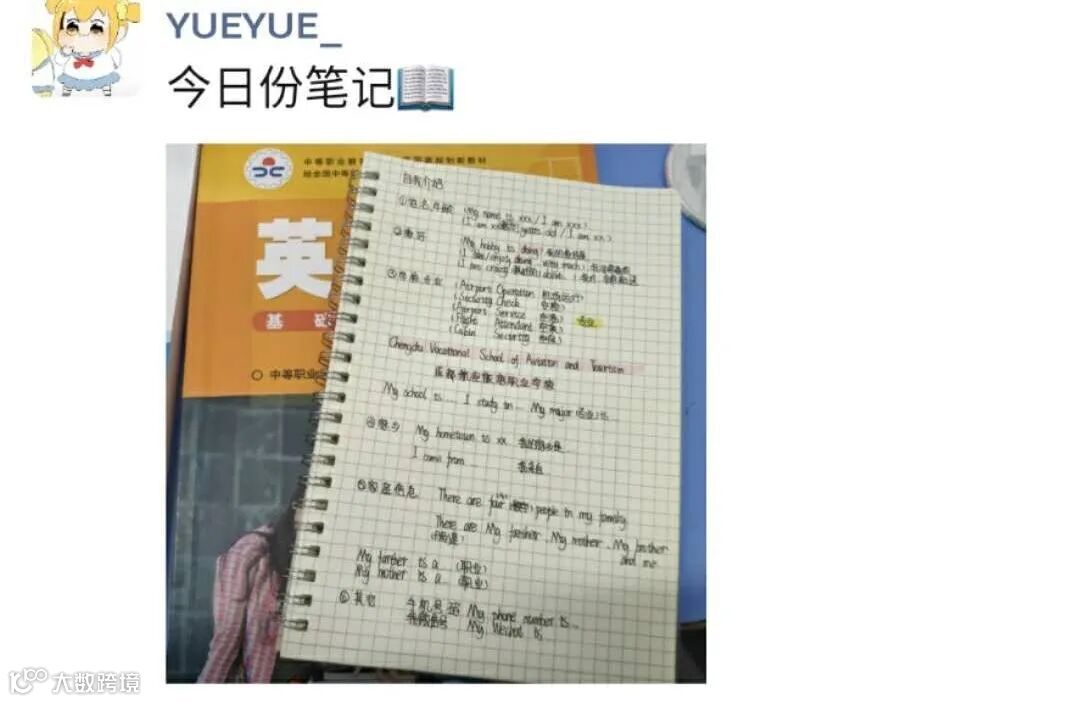 YUEYUE_
今日份笔记📖
中等职业教
规划新教材
经全国中等
英
基
中等职业
自我介绍
①姓名,年龄 (My name is xxx / I am xxx)
(I am xx years old / I am xx)
②爱好 (My hobby is doing) 我的爱好是
(I like/enjoy doing very much)
(I am crazy about doing)
③学校专业 (Airport Operation
(Security Check 安检)
(Airport Service
(Flight Attendant 空乘)
(Cabin Security 空保)
专业
Chengdu Vocational School of Aviation and Tourism
成都航空旅游职业学校
My school is ... I study in ... My major (专业) is ...
④家乡 My hometown is xx 我的家乡是
I come from ... 我来自
⑤家庭信息 There are four people in my family
There are My farther, My mother, My brother
and me
My farther is a (职业)
My mother is a (职业)
⑥其它 手机号码 My phone number is ...
My Wechat is
大数跨境